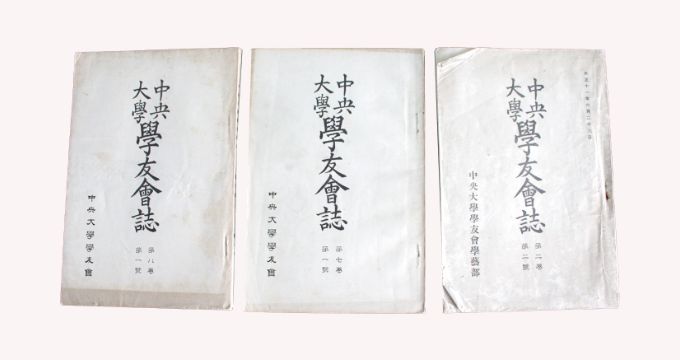 中央
大學
學友會誌
第八卷
第一號
中央大學學友會
中央
大學
學友會誌
第七卷
第一號
中央大學學友會
中央
大學
學友會誌
第二卷
第二號
中央大學學友會學藝部